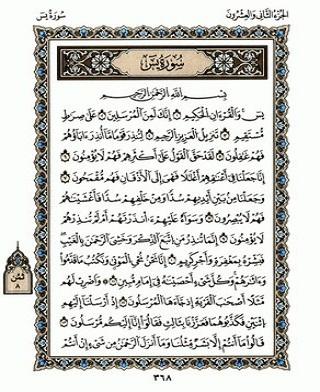 الجزء الثاني والعشرون
سورة يس
سورة يس
بسم الله الرحمن الرحيم
يس ١ والقرءان الحكيم ٢ إنك لمن المرسلين ٣ على صرط
مستقيم ٤ تنزيل العزيز الرحيم ٥ لتنذر قوما ما أنذر ءاباؤهم
فهم غفلون ٦ لقد حق القول على أكثرهم فهم لا يؤمنون ٧
إنا جعلنا في أعنقهم أغللا فهي إلى الأذقان فهم مقمحون ٨
وجعلنا من بين أيديهم سدا ومن خلفهم سدا فأغشينهم
فهم لا يبصرون ٩ وسواء عليهم ءأنذرتهم أم لم تنذرهم
لا يؤمنون ١٠ إنما تنذر من اتبع الذكر وخشي الرحمن بالغيب
فبشره بمغفرة وأجر كريم ١١ إنا نحن نحي الموتى ونكتب ما قدموا
وءاثرهم وكل شيء أحصينه في إمام مبين ١٢ واضرب لهم
مثلا أصحب القرية إذ جاءها المرسلون ١٣ إذ أرسلنا إليهم
اثنين فكذبوهما فعززنا بثالث فقالوا إنا إليكم مرسلون ١٤
قالوا ما أنتم إلا بشر مثلنا وما أنزل الرحمن من شيء إن أنتم
ثمن
٨
٣٦٨